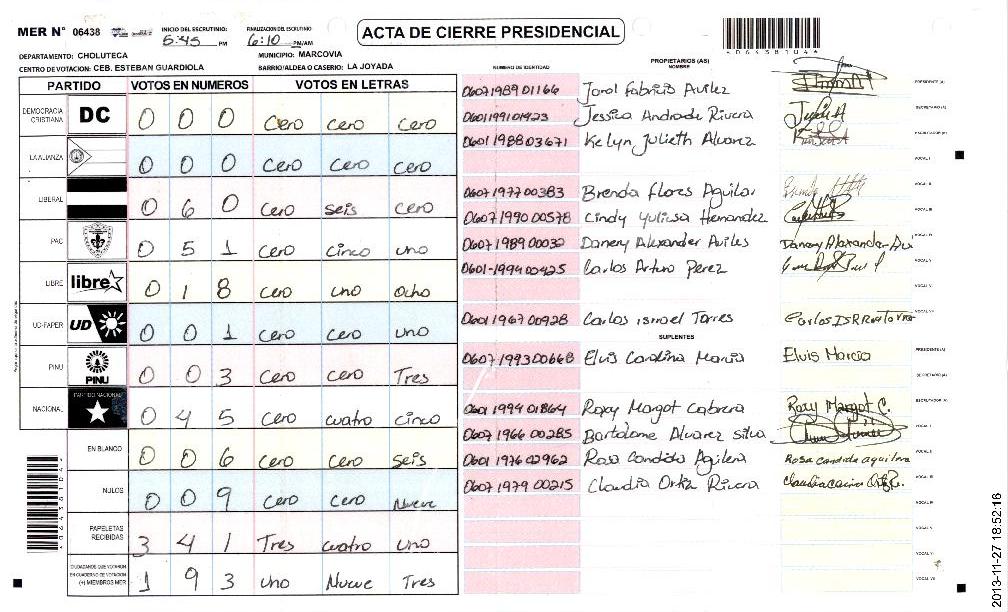 MER N° 06438 INICIO DEL ESCRUTINIO: 5:45 PM FINALIZACION DEL ESCRUTINIO 6:10 PM/AM
ACTA DE CIERRE PRESIDENCIAL
DEPARTAMENTO: CHOLUTECA MUNICIPIO: MARCOVIA
CENTRO DE VOTACION: CEB. ESTEBAN GUARDIOLA BARRIO/ALDEA O CASERIO: LA JOYADA
PARTIDO VOTOS EN NUMEROS VOTOS EN LETRAS
DEMOCRACIA CRISTIANA DC 0 0 0 Cero cero Cero
LA ALIANZA 0 0 0 Cero Cero Cero
LIBERAL 0 6 0 Cero seis cero
PAC 0 5 1 Cero Cinco uno
LIBRE libre 0 1 8 Cero uno ocho
UD-FAPER UD 0 0 1 Cero Cero uno
PINU PINU 0 0 3 Cero Cero Tres
NACIONAL PARTIDO NACIONAL 0 4 5 Cero cuatro cinco
EN BLANCO 0 0 6 Cero Cero seis
NULOS 0 0 9 Cero Cero Nueve
PAPELETAS RECIBIDAS 3 4 1 Tres cuatro uno
CIUDADANOS QUE VOTARON EN CUADERNO DE VOTACION (+) MIEMBROS MER 1 9 3 uno Nueve Tres
NUMERO DE IDENTIDAD PROPIETARIOS (AS) NOMBRE
0607198901166 Jorol Fabricio Avilez PRESIDENTE (A)
0601199101923 Jessica Andrade Rivera SECRETARIO (A)
0601198803671 Kelyn Julieth Alvarez ESCRUTADOR (A)
VOCAL I
0607197700383 Brenda Flores Aguilar VOCAL II
0607199000578 Cindy Yulissa Hernandez VOCAL III
0607198900032 Danery Alexander Aviles Danery Alexander Avi VOCAL IV
0601-1994-00425 Carlos Arturo Perez
VOCAL VI
0601196700928 Carlos ismael Torres VOCAL VII
SUPLENTES
0607199300668 Elvis Carolina Marcia Elvis Marcia PRESIDENTE (A)
SECRETARIO (A)
0601199401864 Roxy Margot Cabrera Roxy Margot C. ESCRUTADOR (A)
0607196600285 Bartolome Alvarez Silva VOCAL I
0601197602962 Rosa Candida Aguilera Rosa candida aguilera VOCAL II
0607197900215 Claudia Ortiz Rivera VOCAL III
VOCAL IV
VOCAL V
VOCAL VI
VOCAL VII
2013-11-27 18:52:16